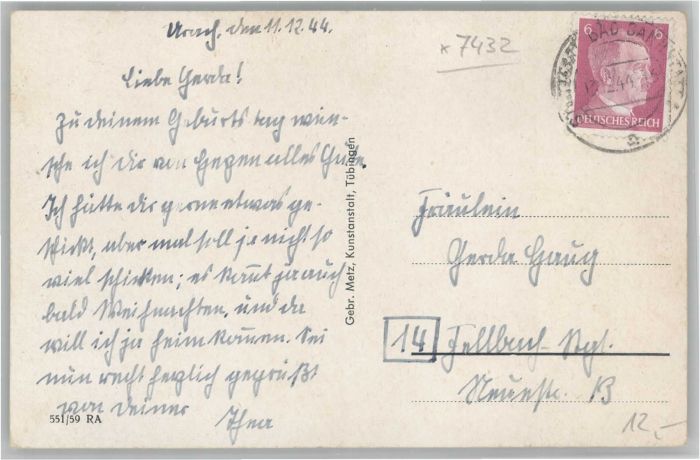 Urach, den 11.12.44.
Liebe Gerda!
Zu deinem Geburtstag wün-
sche ich dir von Herzen alles Gute.
Ich hätte dir gerne etwas ge-
schickt, aber man soll ja nicht so
viel schicken; es kommt ja auch
bald Weihnachten, und da
will ich ja heim kommen. Sei
nun recht herzlich gegrüßt
von deiner
Thea
551/59 RA
Gebr. Metz, Kunstanstalt, Tübingen
x 7432
BAD CANNSTATT
6 6
DEUTSCHES REICH
Fräulein
Gerda Haug
14 Fellbach-Stgt.
Neuestr. 13
12,-